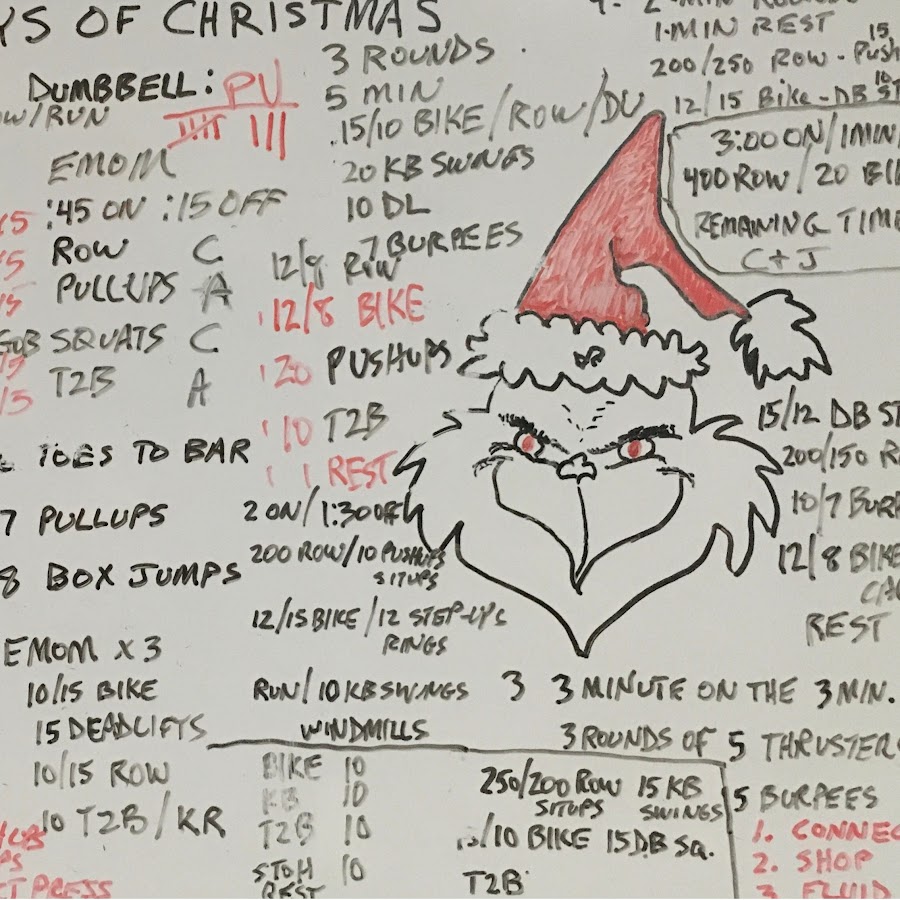 YS OF CHRISTMAS
DUMBBELL: PU
OW/RUN
EMOM
:45 ON :15 OFF
ROW C
PULLUPS A
GOB SQUATS C
T2B A
TOES TO BAR
7 PULLUPS
8 BOX JUMPS
EMOM x 3
10/15 BIKE
15 DEADLIFTS
10/15 ROW
10 T2B/KR
PRESS
3 ROUNDS
5 MIN
15/10 BIKE/ROW/DU
20 KB SWINGS
10 DL
7 BURPEES
12/8 ROW
12/8 BIKE
20 PUSHUPS
10 T2B
1 REST
2 ON/1:30 OFF
200 ROW/10 PUSHUPS
SITUPS
12/15 BIKE/12 STEP-UPS
RINGS
RUN/10 KB SWINGS
WINDMILLS
BIKE 10
KB 10
T2B 10
STOH 10
REST
1-MIN REST
15
200/250 ROW - Push
12/15 Bike - DB ST
10
3:00 ON/1MIN/
400 ROW/20 BI
REMAINING TIME
C+J
15/12 DB ST
200/150 R
10/7 BURP
12/8 BIKE
CA
REST
3 3 MINUTE ON THE 3 MIN.
3 ROUNDS OF 5 THRUSTER
5 BURPEES
250/200 ROW 15 KB
SITUPS SWINGS
/10 BIKE 15 DB SQ.
T2B
1. CONNEC
2. SHOP
3. FLUID